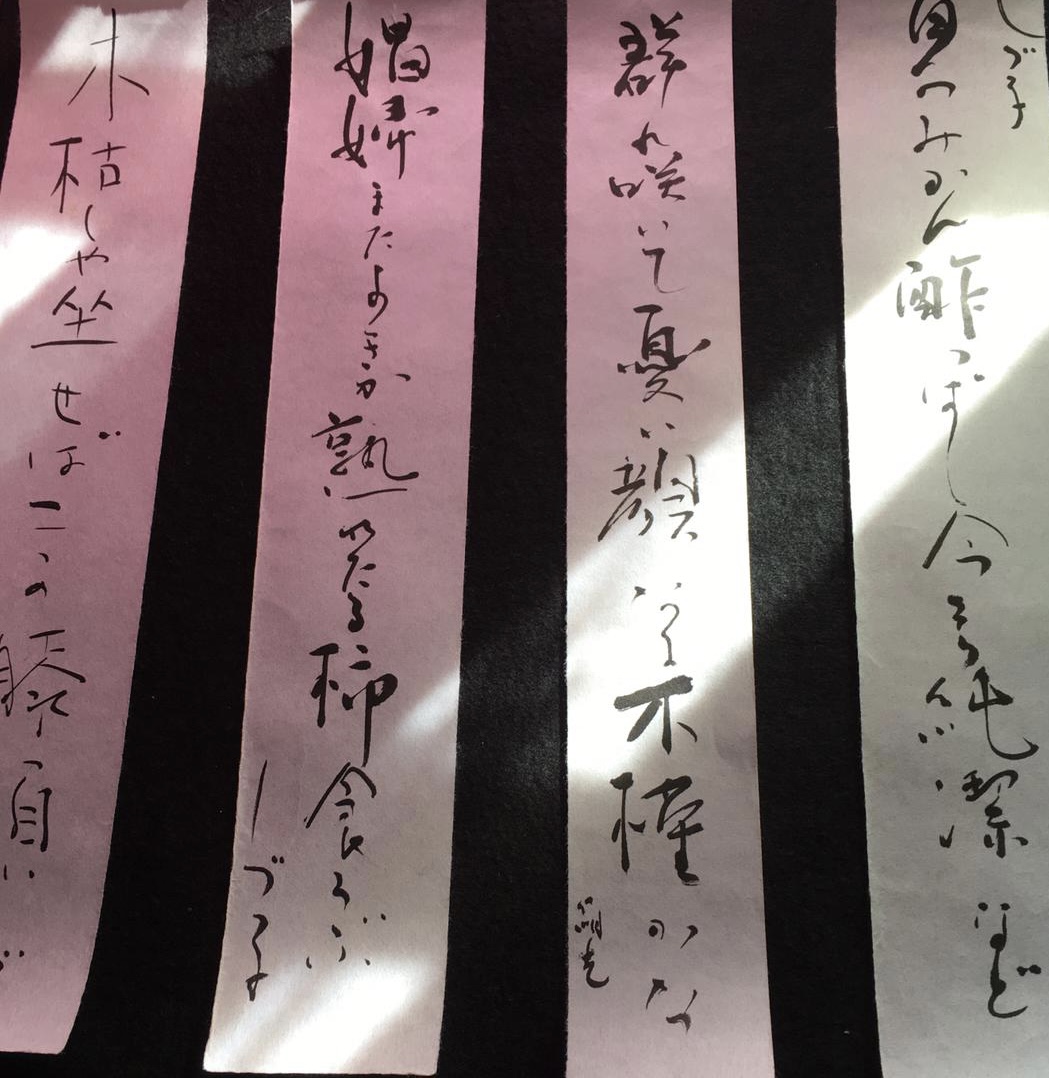 しづ子
夏みかん酢つぱし今さら純潔など
群れ咲いて憂い顔なる木槿かな
娼婦またよきか熟れたる柿食うぶ
しづ子
木枯しや坐せば二つの膝頭